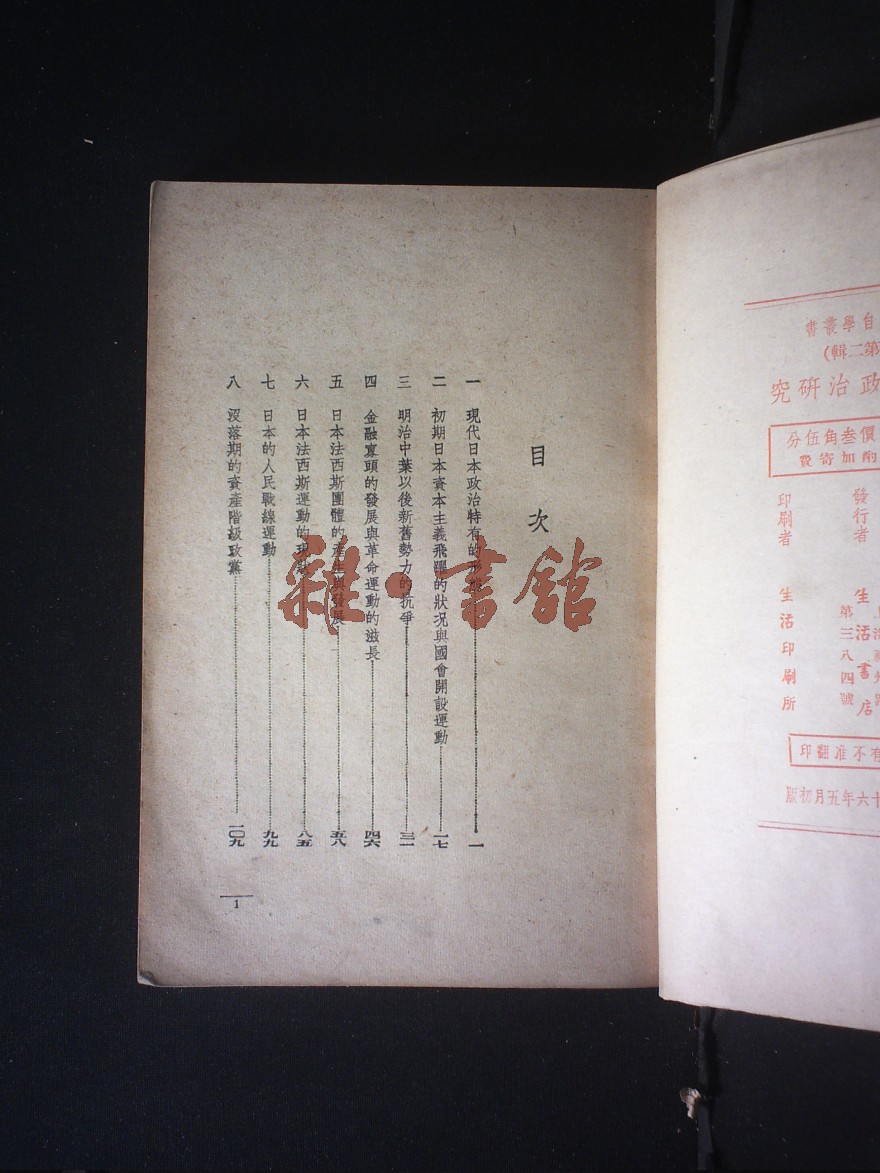 目次
一 現代日本政治特有的形態 一
二 初期日本資本主義飛躍的狀况與國會開設運動 一七
三 明治中葉以後新舊勢力的抗爭 三一
四 金融寡頭的發展與革命運動的滋長 四六
五 日本法西斯團體的產生與發展 五八
六 日本法西斯運動的現狀 八五
七 日本的人民戰線運動 九九
八 沒落期的資產階級政黨 一〇九
1
雜·書館
自學叢書
第二輯)
政治研究
價叁角伍分
酌加寄費
發行者 生活書店
第三八四號
印刷者 生活印刷所
有不准翻印
十六年五月初版